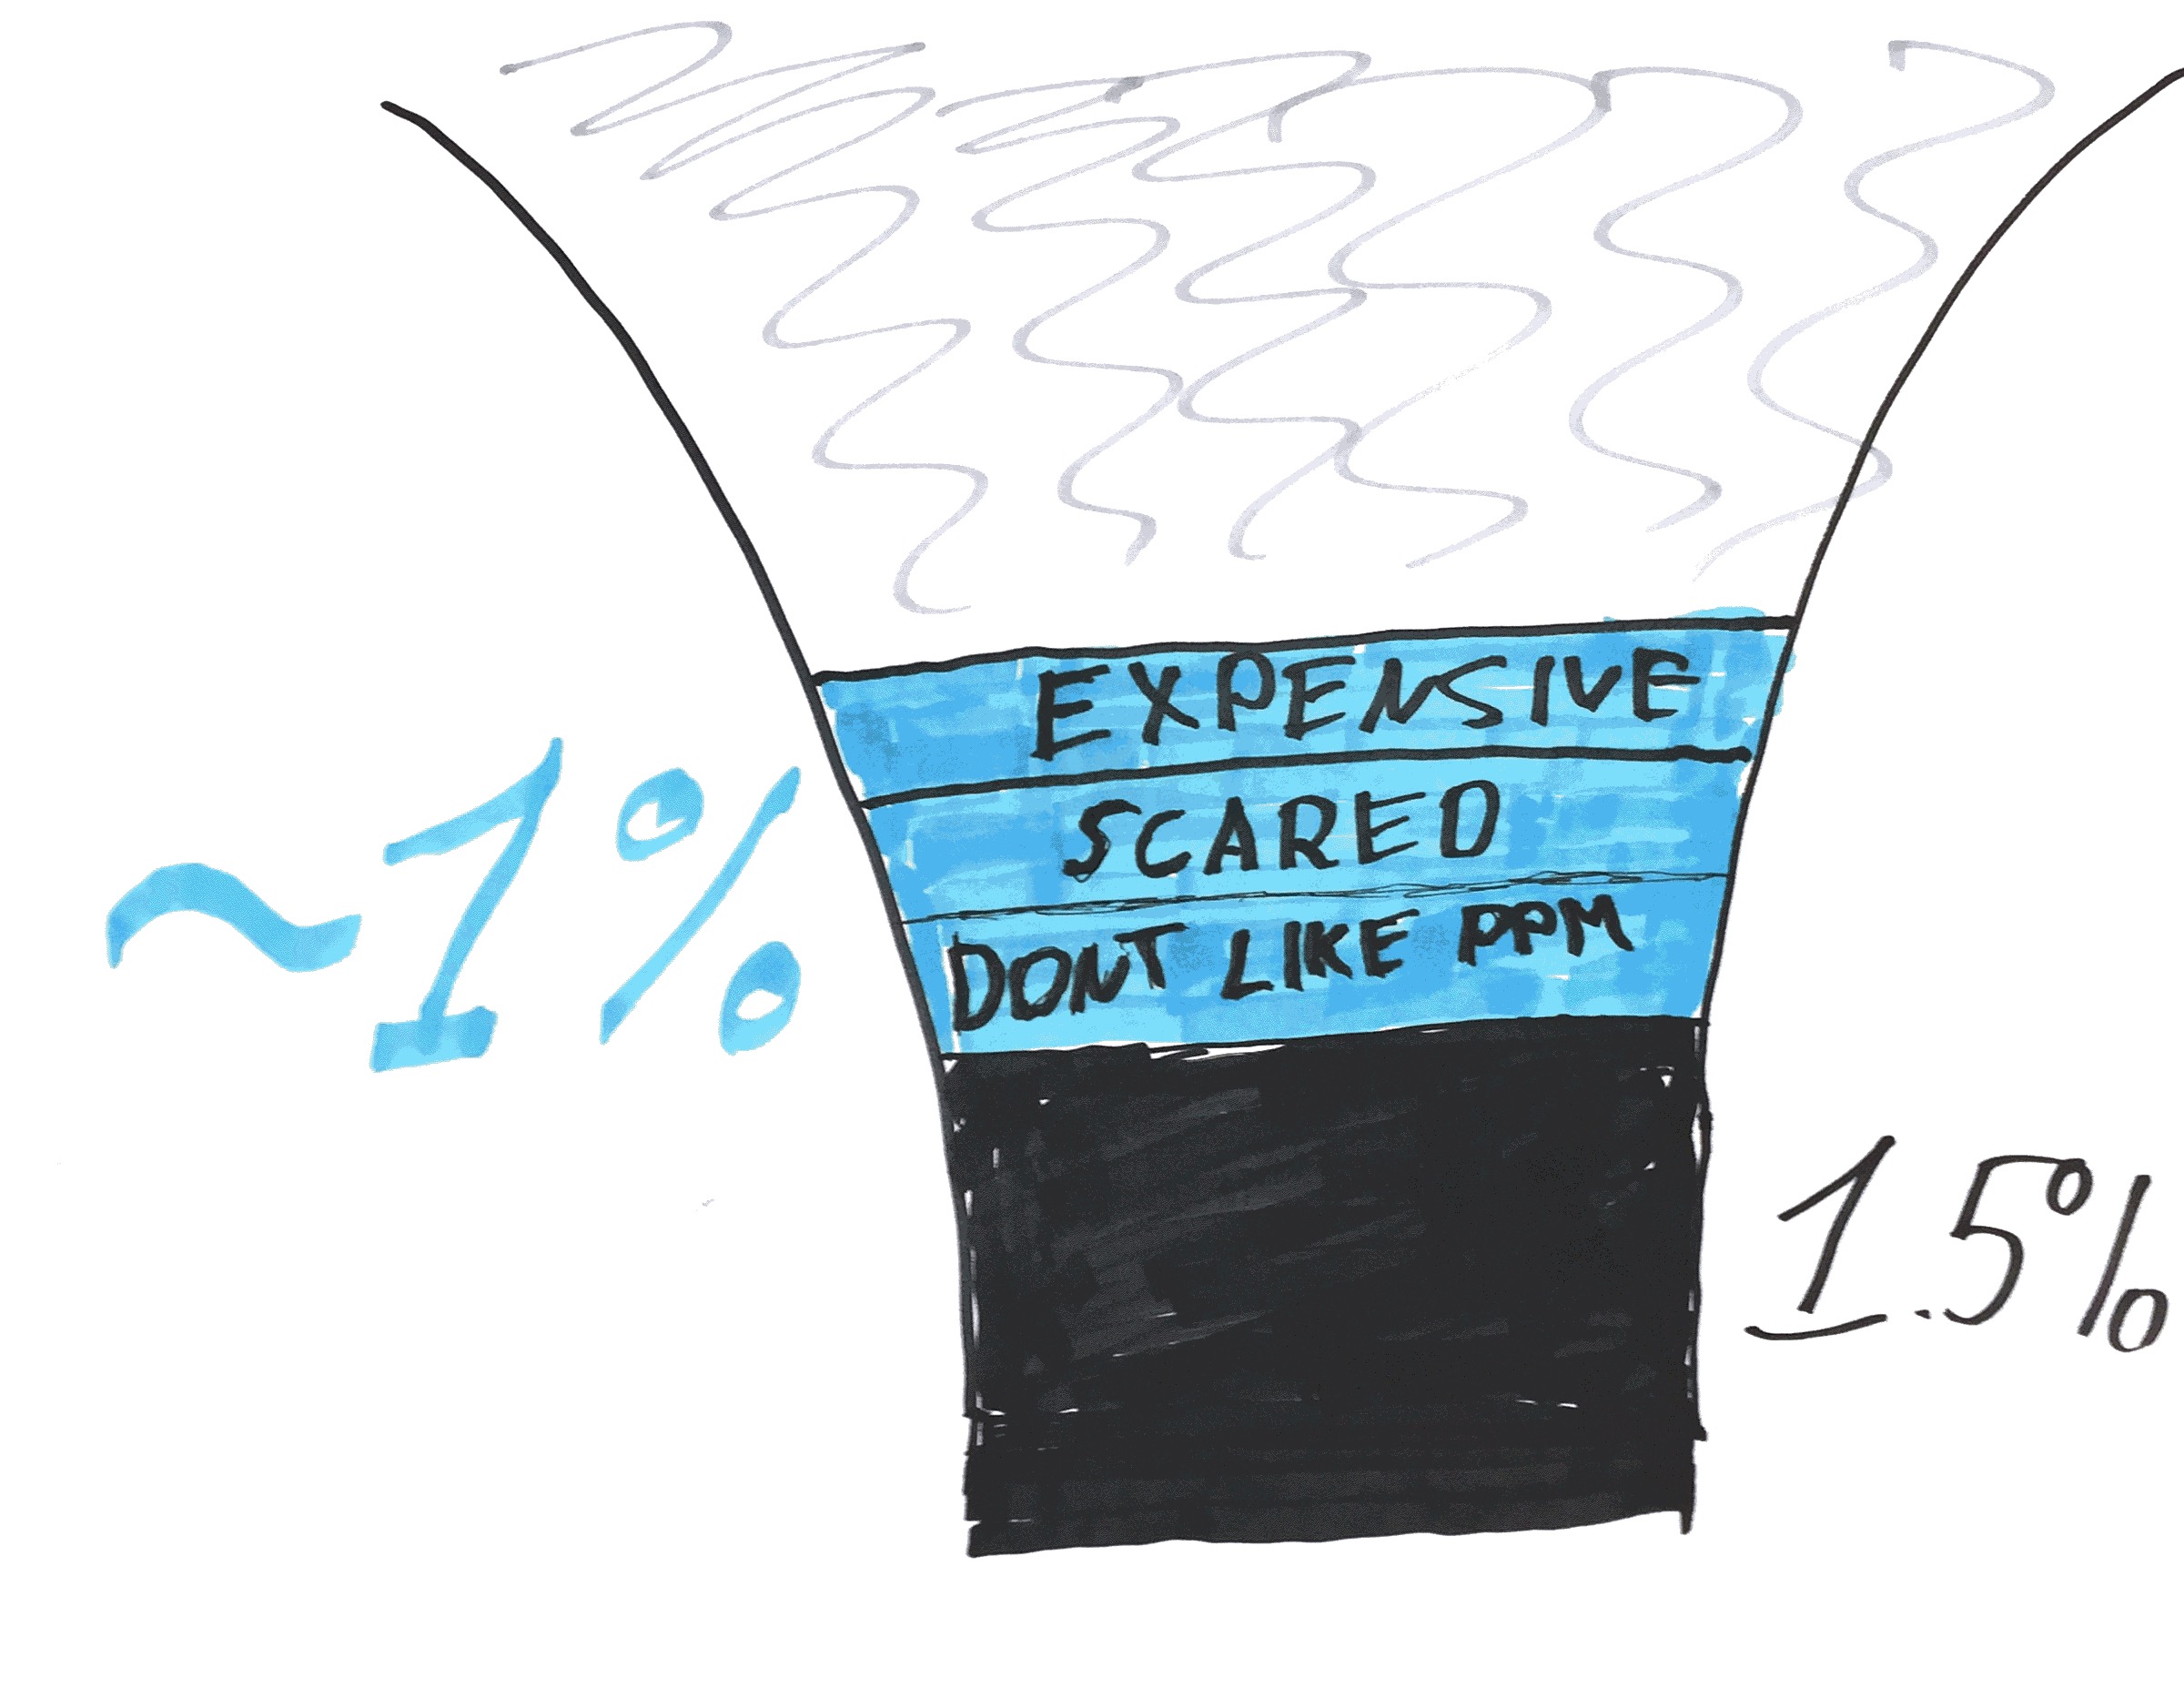 EXPENSIVE
SCARED
DONT LIKE PPM
~1%
1.5%